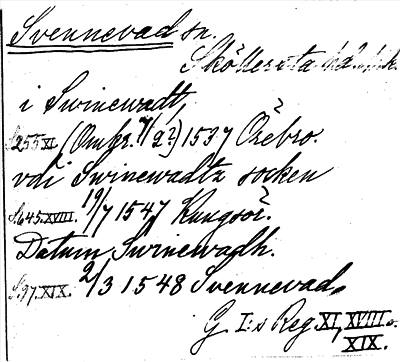 Svennevad sn.
Sköllersta hd.
i Swinewadt,
S.255.XI. (Omkr. 7/9?) 1537 Örebro.
vdi Swinewadtz socken
S.645.XVIII. 19/7 1547 Kungsör.
Datum Swinewadh.
S.37.XIX. 2/3 1548 Svennevad.
G. I:s Reg. XI, XVIII o.
XIX.